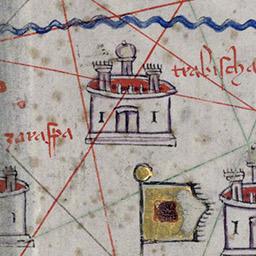 trabischa
zaraspa